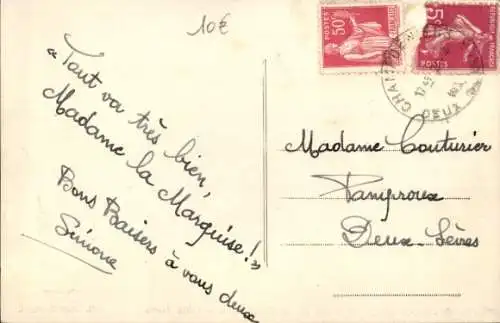 10€
50c
POSTES
5c
POSTES
« Tout va très bien,
Madame la Marquise! »
Bons Baisers à vous deux
Simone
Madame Couturier
Pamproux
Deux-Sèvres